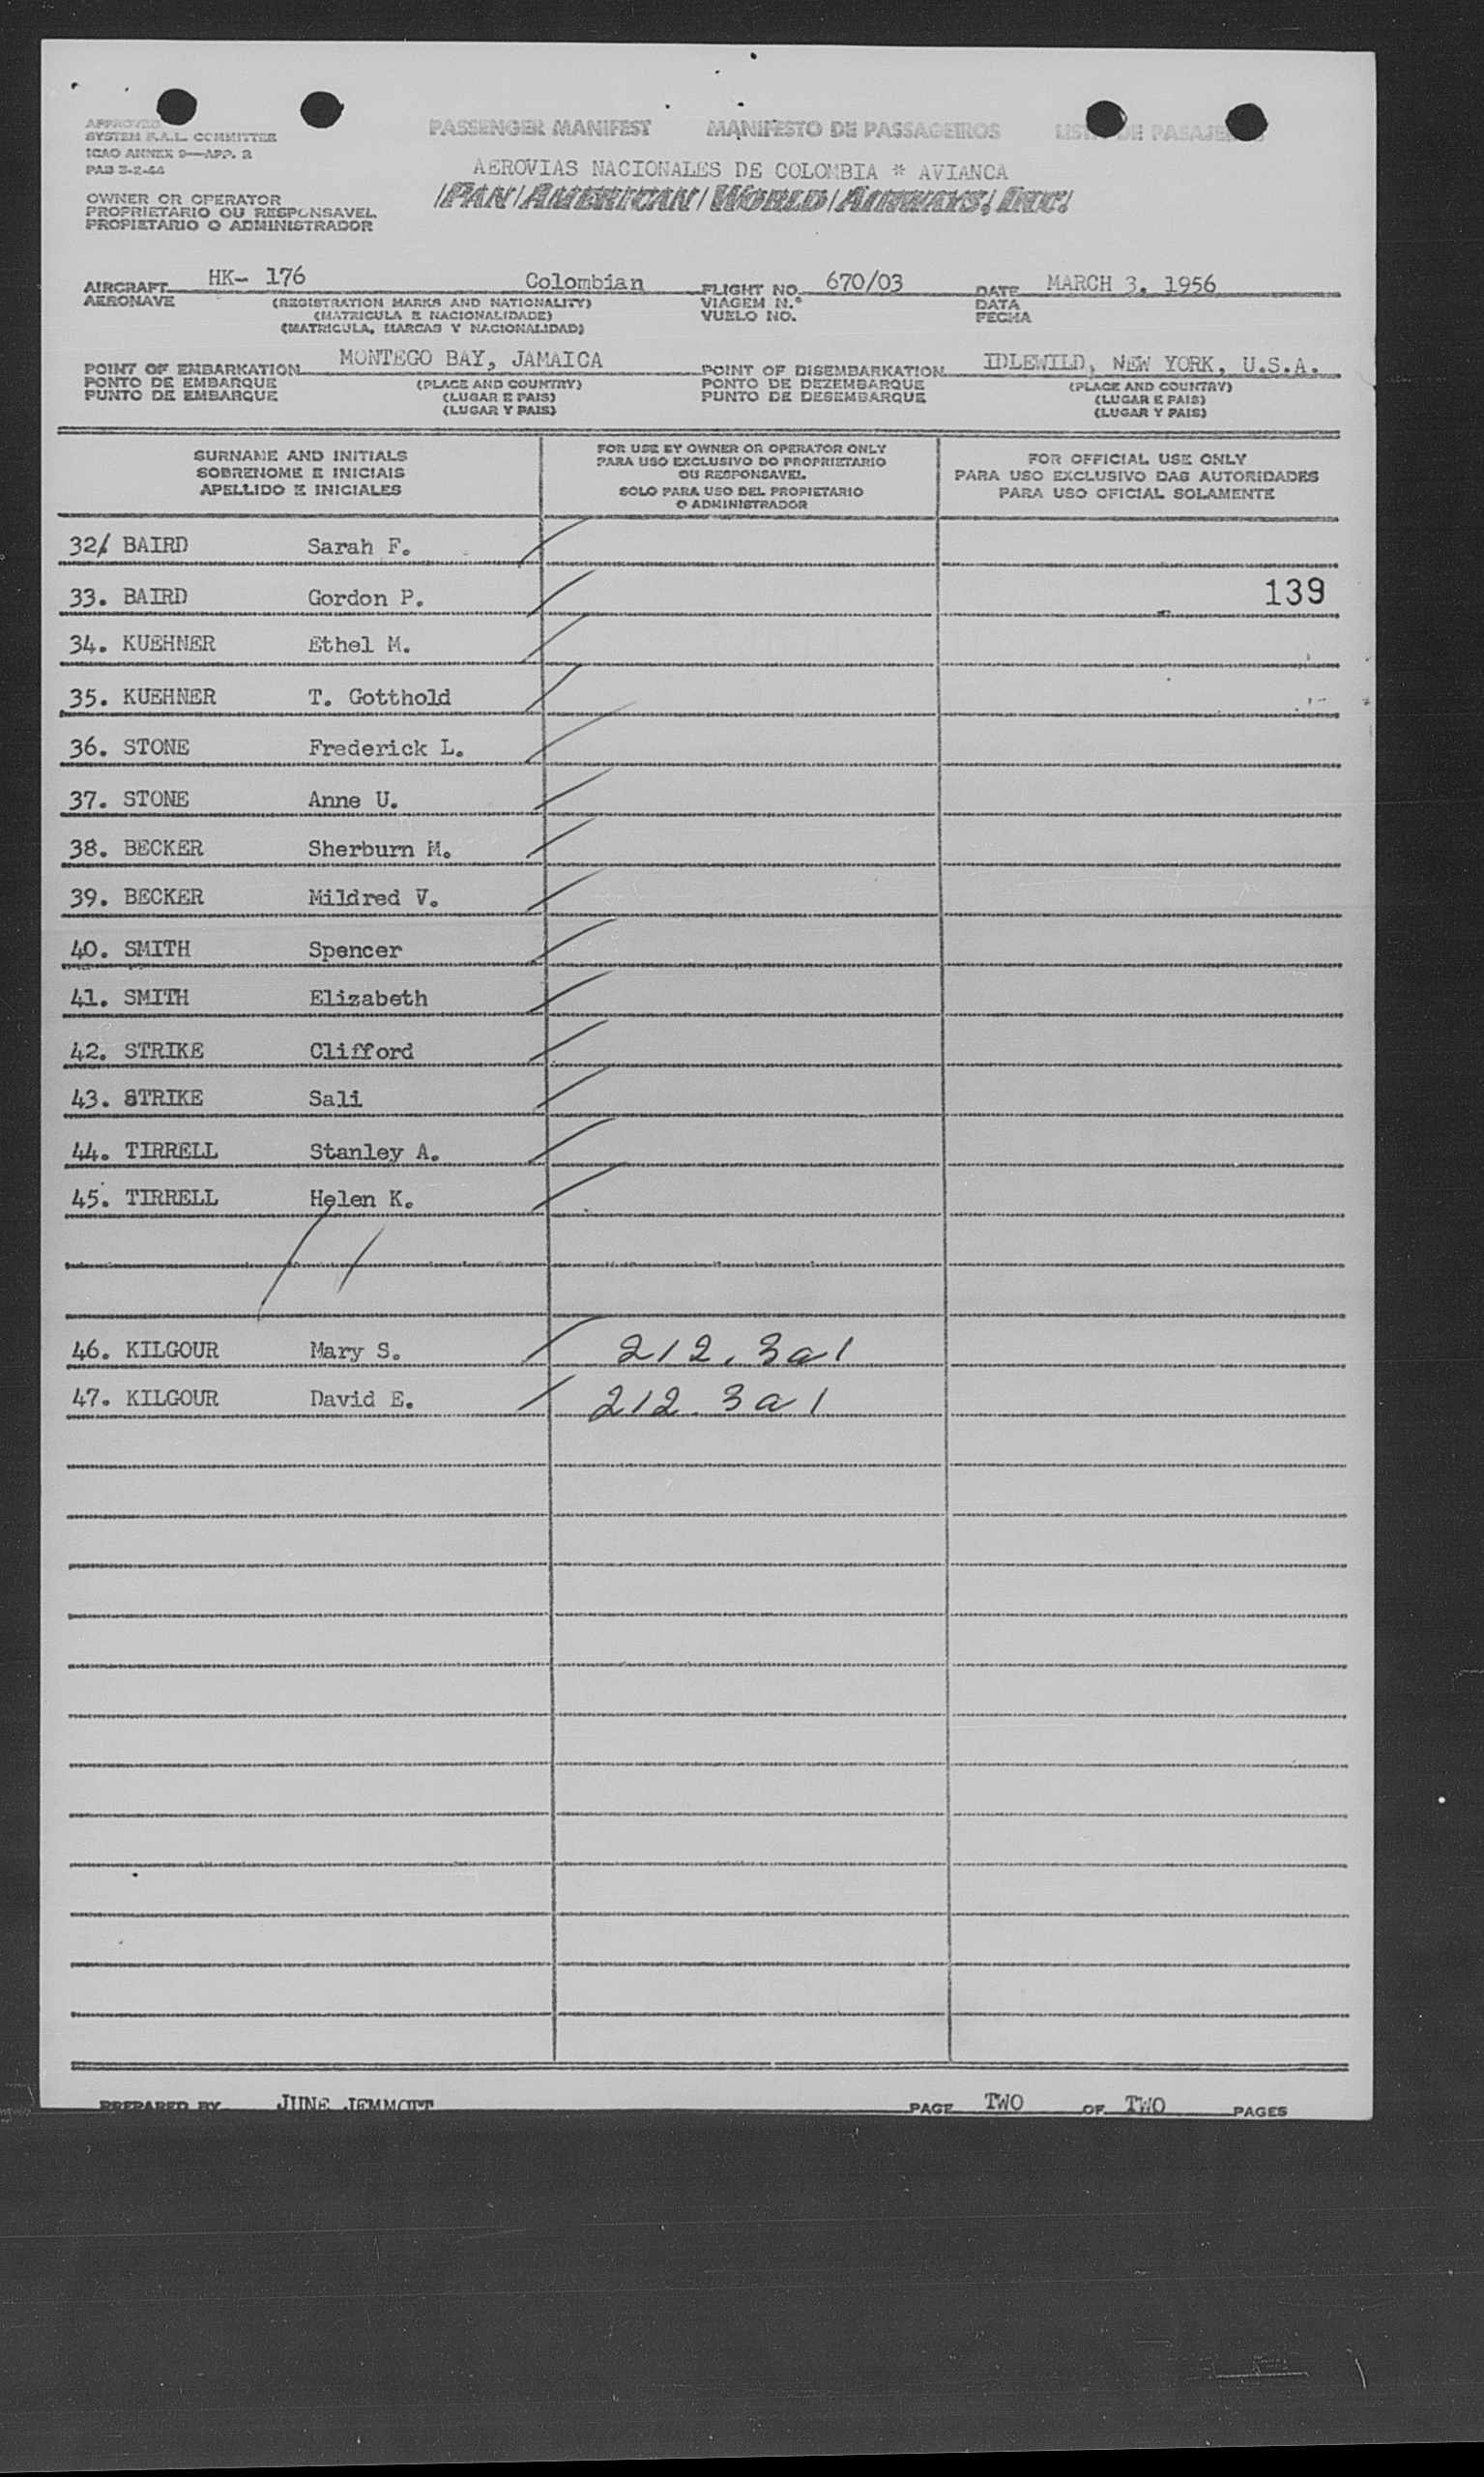 APPROVED
SYSTEM F.A.L. COMMITTEE
ICAO ANNEX 9—APP. 2
PAB 3-2-44
PASSENGER MANIFEST MANIFESTO DE PASSAGEIROS LISTA DE PASAJEROS
AEROVIAS NACIONALES DE COLOMBIA * AVIANCA
PAN AMERICAN WORLD AIRWAYS, INC.
OWNER OR OPERATOR
PROPRIETARIO OU RESPONSAVEL
PROPIETARIO O ADMINISTRADOR
AIRCRAFT HK- 176 Colombian FLIGHT NO. 670/03 DATE MARCH 3, 1956
AERONAVE (REGISTRATION MARKS AND NATIONALITY) VIAGEM N.º DATA
(MATRICULA E NACIONALIDADE) VUELO NO. FECHA
(MATRICULA, MARCAS Y NACIONALIDAD)
POINT OF EMBARKATION MONTEGO BAY, JAMAICA POINT OF DISEMBARKATION IDLEWILD, NEW YORK, U.S.A.
PONTO DE EMBARQUE (PLACE AND COUNTRY) PONTO DE DEZEMBARQUE (PLACE AND COUNTRY)
PUNTO DE EMBARQUE (LUGAR E PAIS) PUNTO DE DESEMBARQUE (LUGAR E PAIS)
(LUGAR Y PAIS) (LUGAR Y PAIS)
SURNAME AND INITIALS
SOBRENOME E INICIAIS
APELLIDO E INICIALES
FOR USE BY OWNER OR OPERATOR ONLY
PARA USO EXCLUSIVO DO PROPRIETARIO
OU RESPONSAVEL
SOLO PARA USO DEL PROPIETARIO
O ADMINISTRADOR
FOR OFFICIAL USE ONLY
PARA USO EXCLUSIVO DAS AUTORIDADES
PARA USO OFICIAL SOLAMENTE
32/ BAIRD Sarah F.
33. BAIRD Gordon P. 139
34. KUEHNER Ethel M.
35. KUEHNER T. Gotthold
36. STONE Frederick L.
37. STONE Anne U.
38. BECKER Sherburn M.
39. BECKER Mildred V.
40. SMITH Spencer
41. SMITH Elizabeth
42. STRIKE Clifford
43. STRIKE Sali
44. TIRRELL Stanley A.
45. TIRRELL Helen K.
46. KILGOUR Mary S. 212.3a1
47. KILGOUR David E. 212.3a1
PREPARED BY JUNE JEMMOTT PAGE TWO OF TWO PAGES